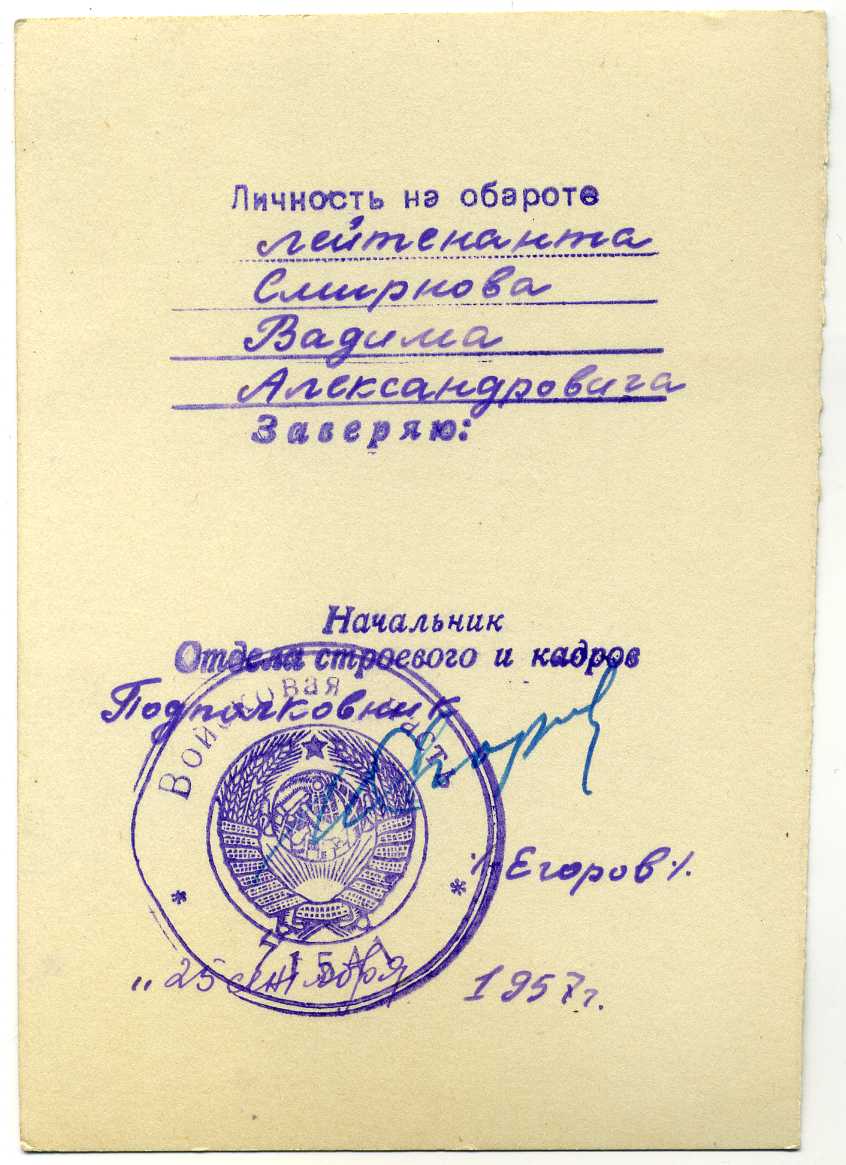 Личность на обароте
лейтенанта
Смирнова
Вадима
Александровича
Заверяю:
Начальник
Отдела строевого и кадров
Подполковник
Войсковая часть
/Егоров/.
„25 сентября 1957г.